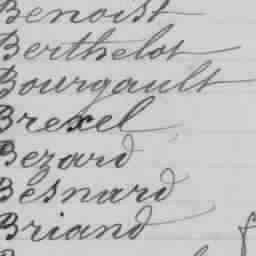 Benoist
Berthelot
Bourgault
Brexel
Bezard
Besnard
Briand